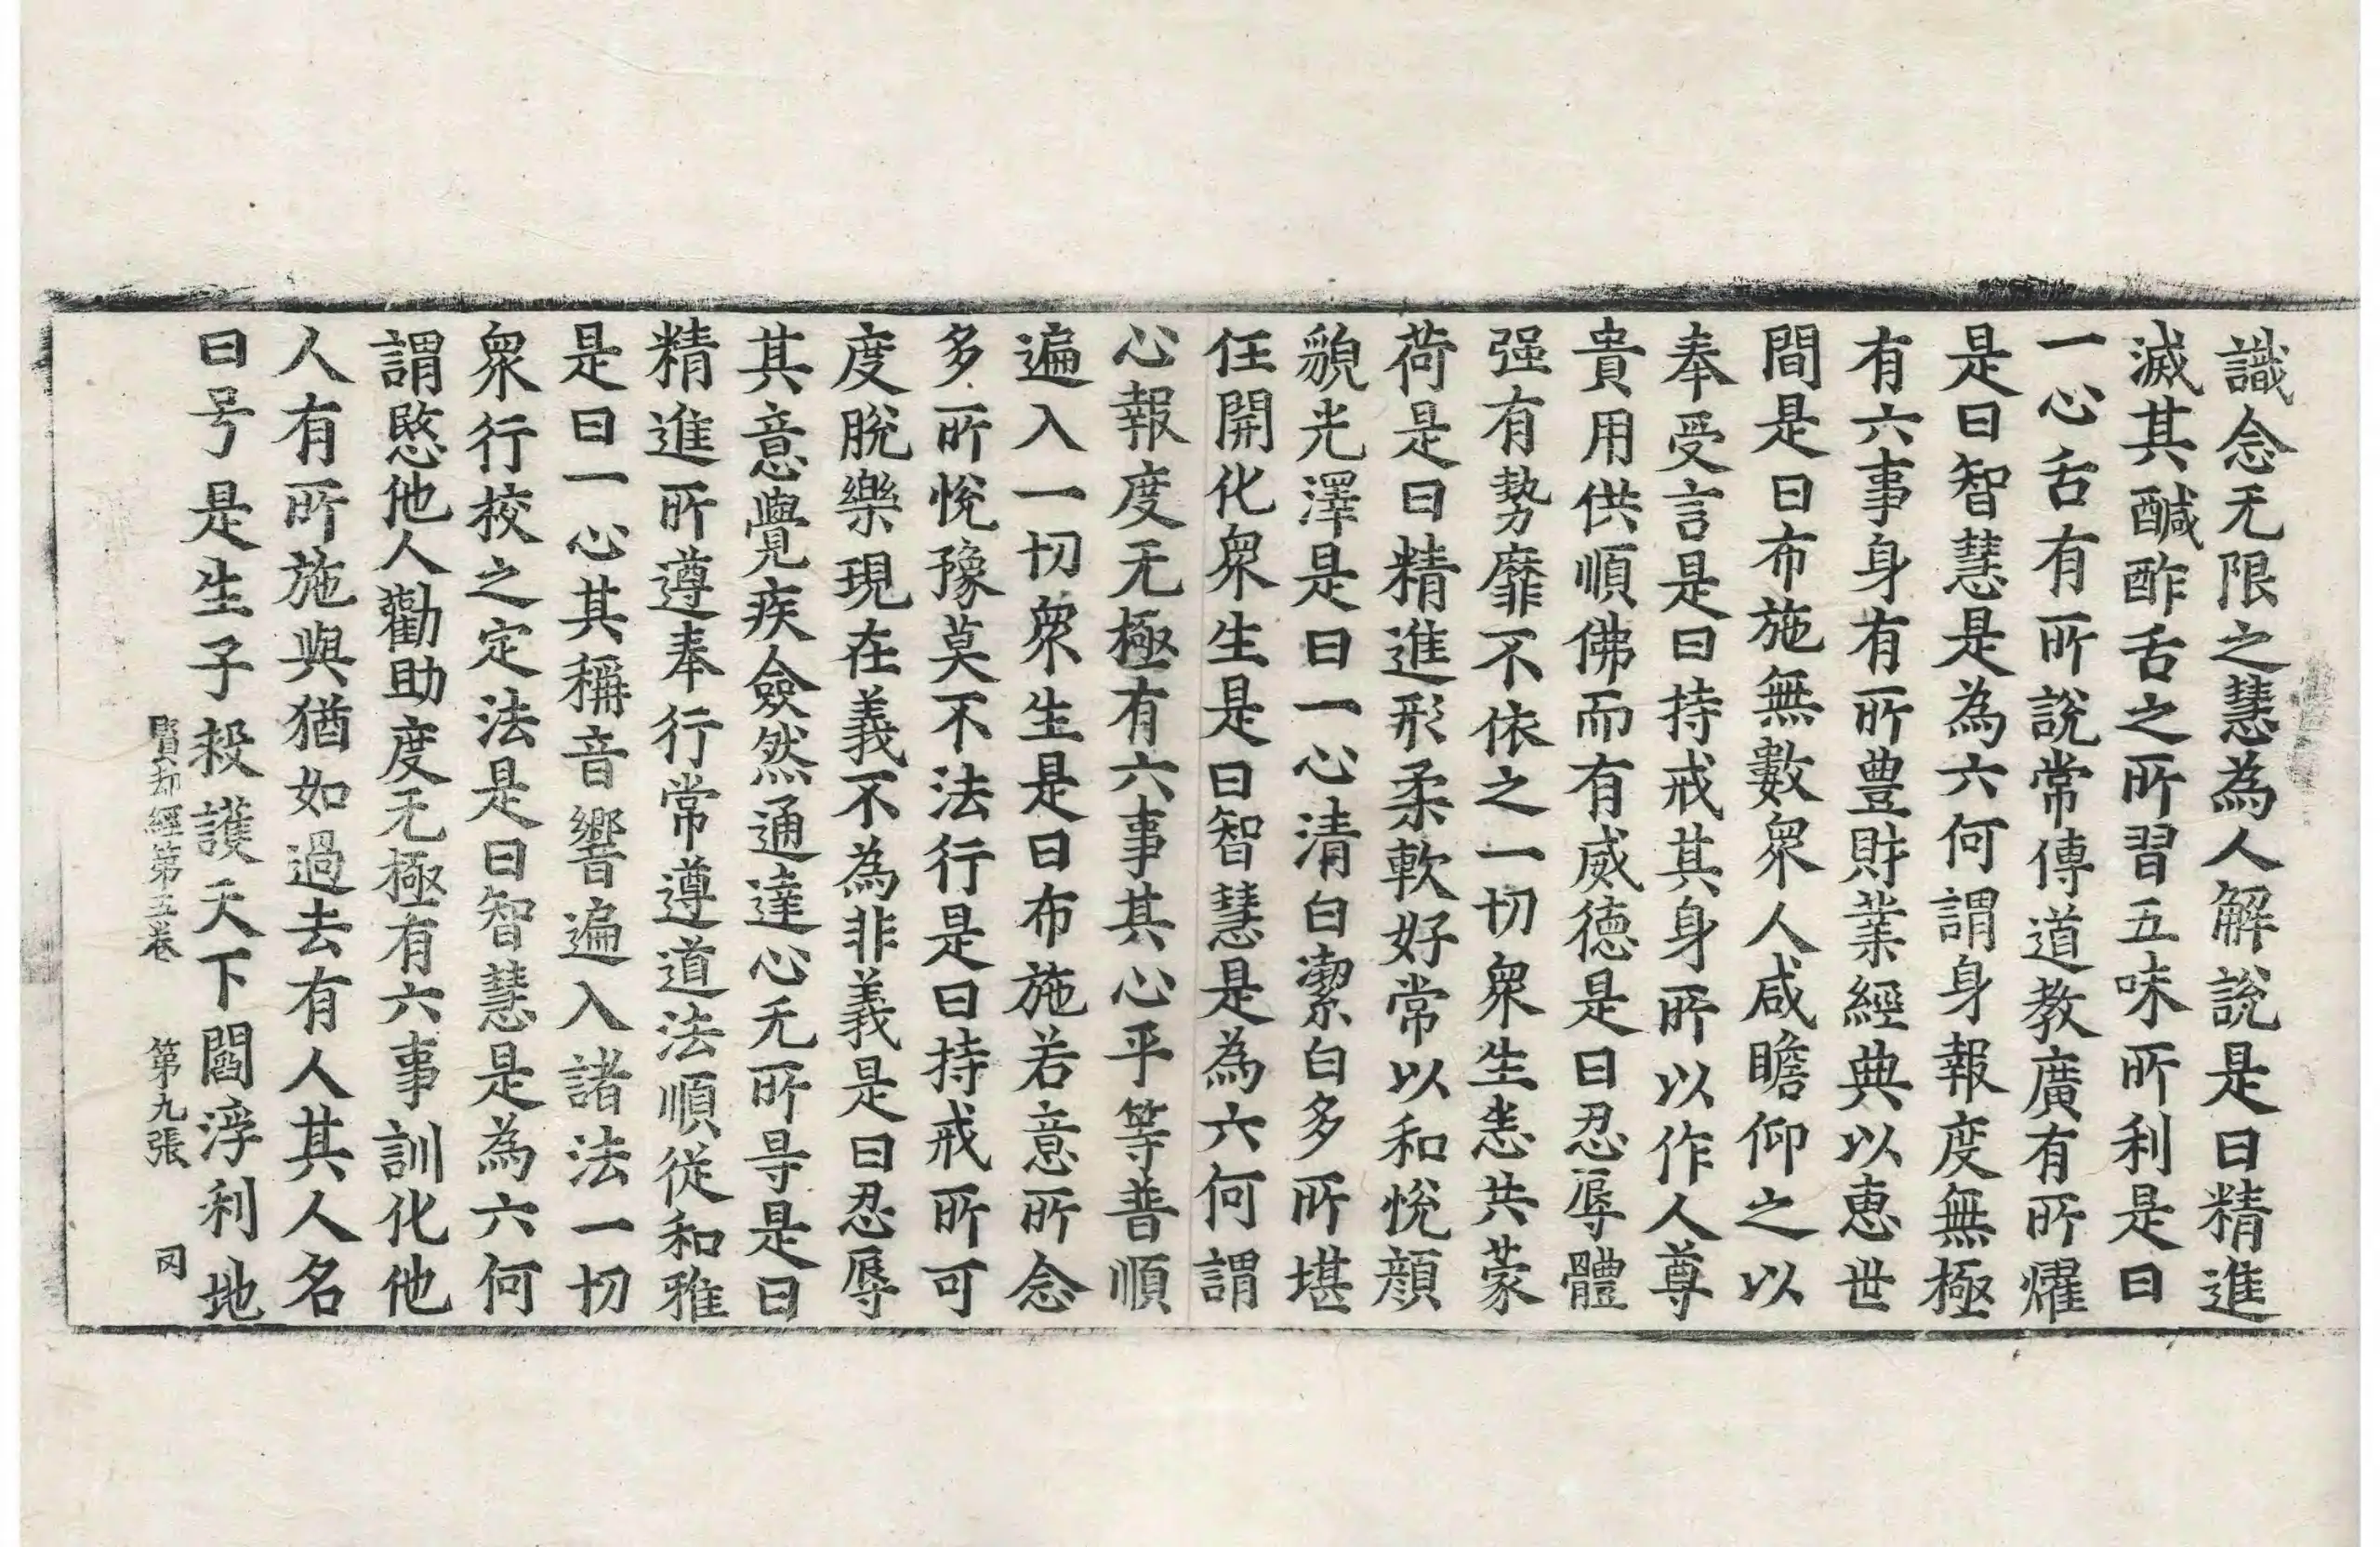 識念无限之慧為人解說是曰精進
滅其醎酢舌之所習五味所利是曰
一心舌有所說常傳道教廣有所燿
是曰智慧是為六何謂身報度無極
有六事身有所豊財業經典以恵世
間是曰布施無數衆人咸瞻仰之以
奉受言是曰持戒其身所以作人尊
貴用供順佛而有威德是曰忍辱體
强有勢靡不依之一切衆生恙共蒙
荷是曰精進形柔軟好常以和悅顔
貌光澤是曰一心清白潔白多所堪
任開化衆生是曰智慧是為六何謂
心報度无極有六事其心平等普順
遍入一切衆生是曰布施若意所念
多所悅豫莫不法行是曰持戒所可
度脫樂現在義不為非義是曰忍辱
其意覺疾僉然通達心无所㝵是曰
精進所遵奉行常遵道法順從和雅
是曰一心其稱音響遍入諸法一切
衆行校之定法是曰智慧是為六何
謂愍他人勸助度无極有六事訓化他
人有所施與猶如過去有人其人名
曰号是生子殺護天下閻浮利地
賢劫經第五卷 第九張 罔